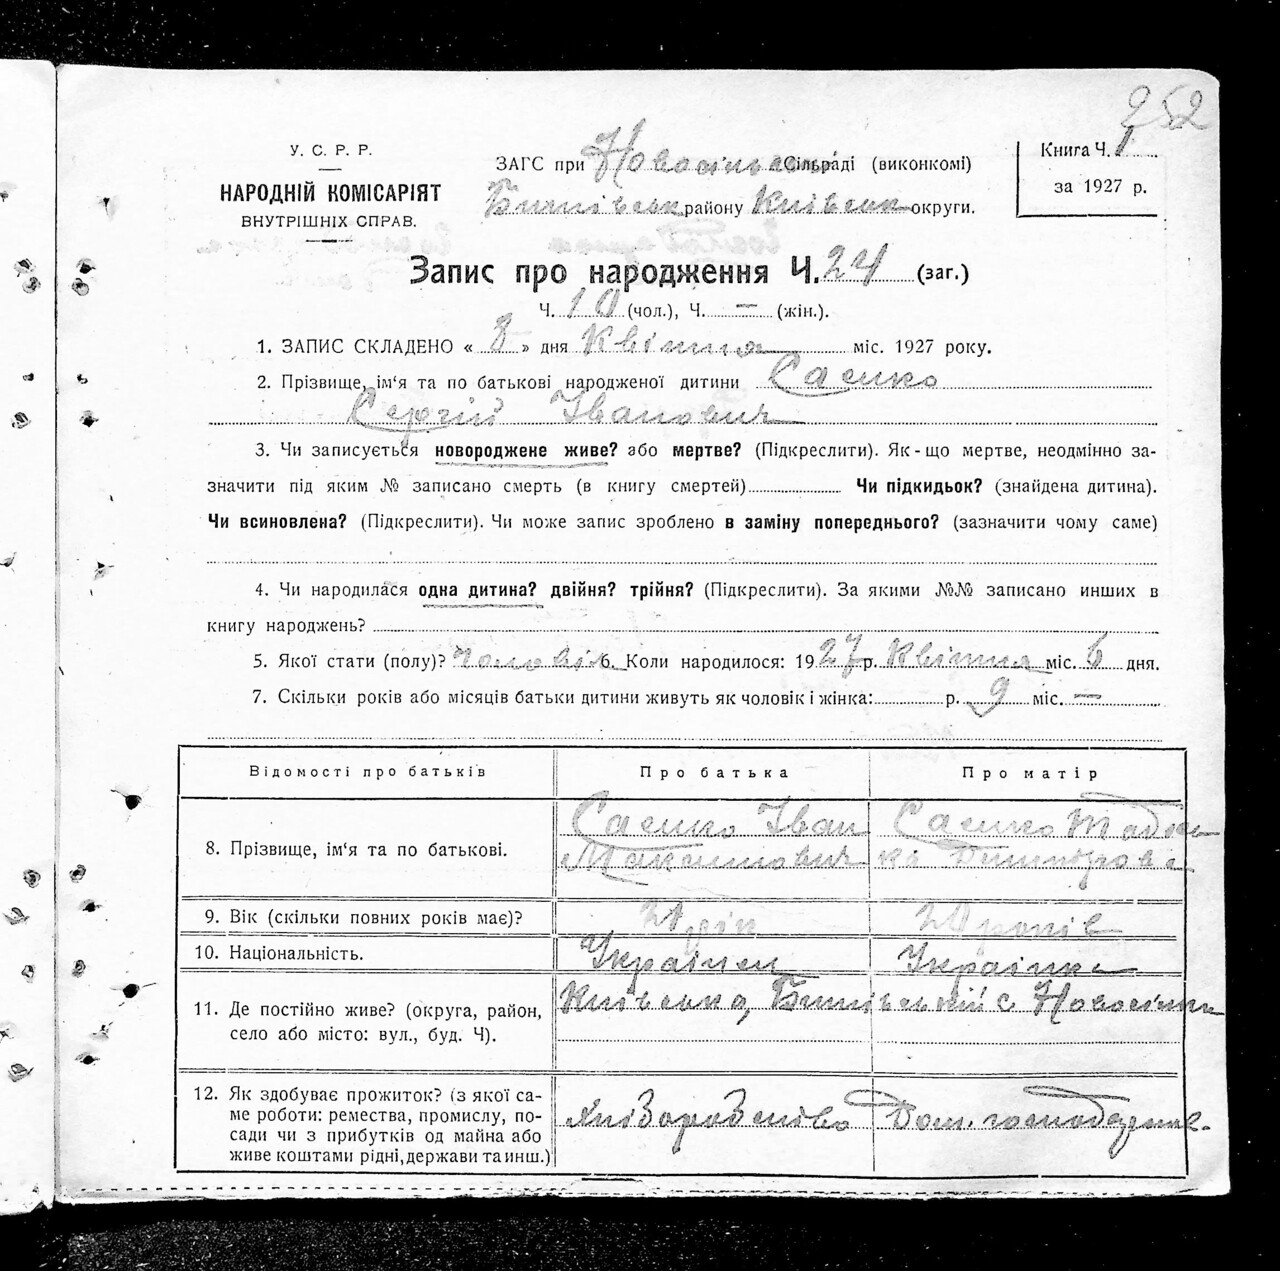 252
У. С. Р. Р.
НАРОДНІЙ КОМІСАРІЯТ
ВНУТРІШНІХ СПРАВ.
ЗАГС при Новосільській Сільраді (виконкомі)
району Київськ округи.
Книга Ч. 1
за 1927 р.
Запис про народження Ч. 24 (заг.)
Ч. 10 (чол.), Ч. — (жін.).
1. ЗАПИС СКЛАДЕНО « 8 » дня Квітня міс. 1927 року.
2. Прізвище, ім'я та по батькові народженої дитини Саєнко
Сергій Іванович
3. Чи записується новороджене живе? або мертве? (Підкреслити). Як-що мертве, неодмінно за-
значити під яким № записано смерть (в книгу смертей) Чи підкидьок? (знайдена дитина).
Чи всиновлена? (Підкреслити). Чи може запис зроблено в заміну попереднього? (зазначити чому саме)
4. Чи народилася одна дитина? двійня? трійня? (Підкреслити). За якими №№ записано инших в
книгу народжень?
5. Якої стати (полу)? чоловіч. 6. Коли народилося: 1927 р. Квітня міс. 6 дня.
7. Скільки років або місяців батьки дитини живуть як чоловік і жінка: р. 9 міс. —
Відомості про батьків Про батька Про матір
8. Прізвище, ім'я та по батькові. Саєнко Іван Саєнко
Максимович
9. Вік (скільки повних років має)? 20 рік 20 років
10. Національність. Українец Українка
11. Де постійно живе? (округа, район,
село або місто: вул., буд. Ч).
Київська, с Новосілки
12. Як здобуває прожиток? (з якої са-
ме роботи: ремества, промислу, по-
сади чи з прибутків од майна або
живе коштами рідні, держави та инш.)
Хліборобство Дом. господарка